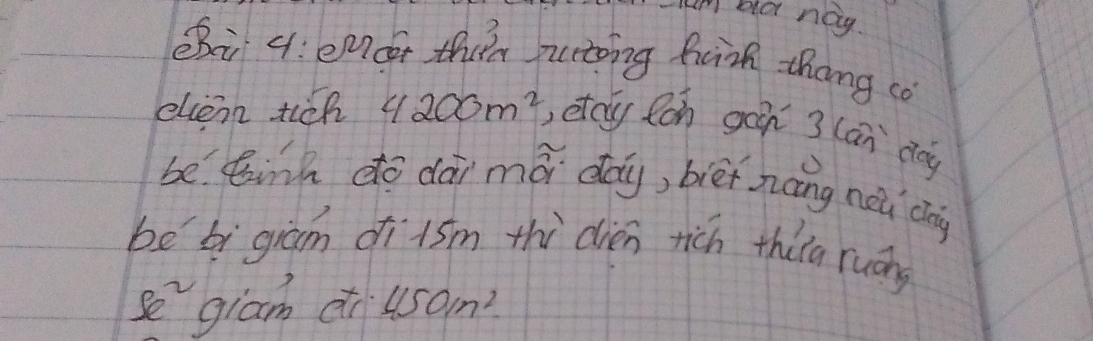 làm bài này.
Bài 4: Một thửa ruộng hình thang có
diện tích 4200m², đáy lớn gấp 3 lần đáy
bé. Tính độ dài mỗi đáy, biết rằng nếu đáy
bé bị giảm đi 15m thì diện tích thửa ruộng
sẽ giảm đi 450m²